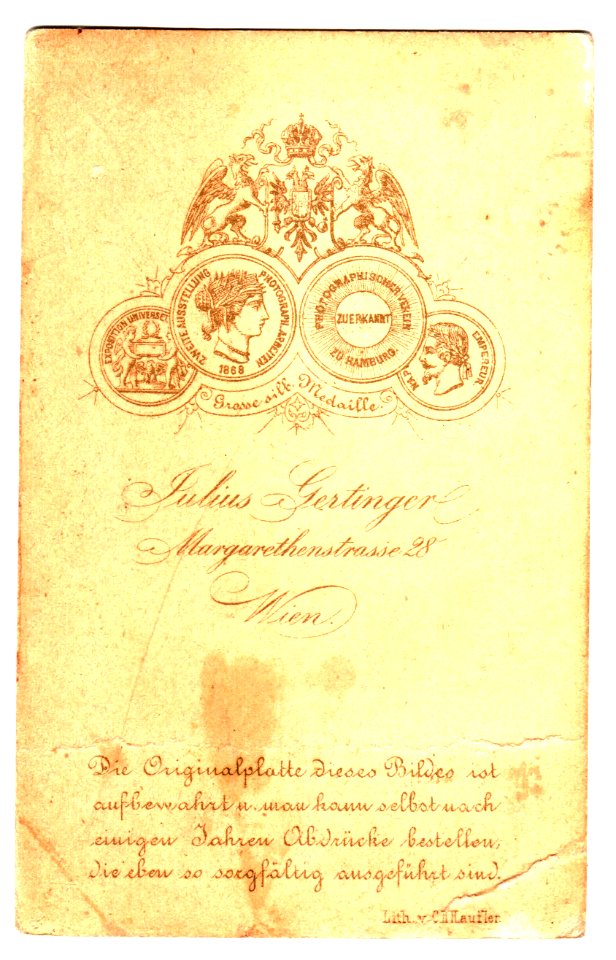 EXPOSITION UNIVERSELLE
ZWEITE AUSSTELLUNG PHOTOGRAPH. ARBEITEN
1868
PHOTOGRAPHISCHER VEREIN
ZUERKANNT
ZU HAMBURG
EMPEREUR
Grosse silb. Medaille.
Julius Gertinger
Margarethenstrasse 28
Wien.
Die Originalplatte dieses Bildes ist
aufbewahrt u. man kann selbst nach
einigen Jahren Abdrücke bestellen,
die eben so sorgfältig ausgeführt sind.
Lith. v.